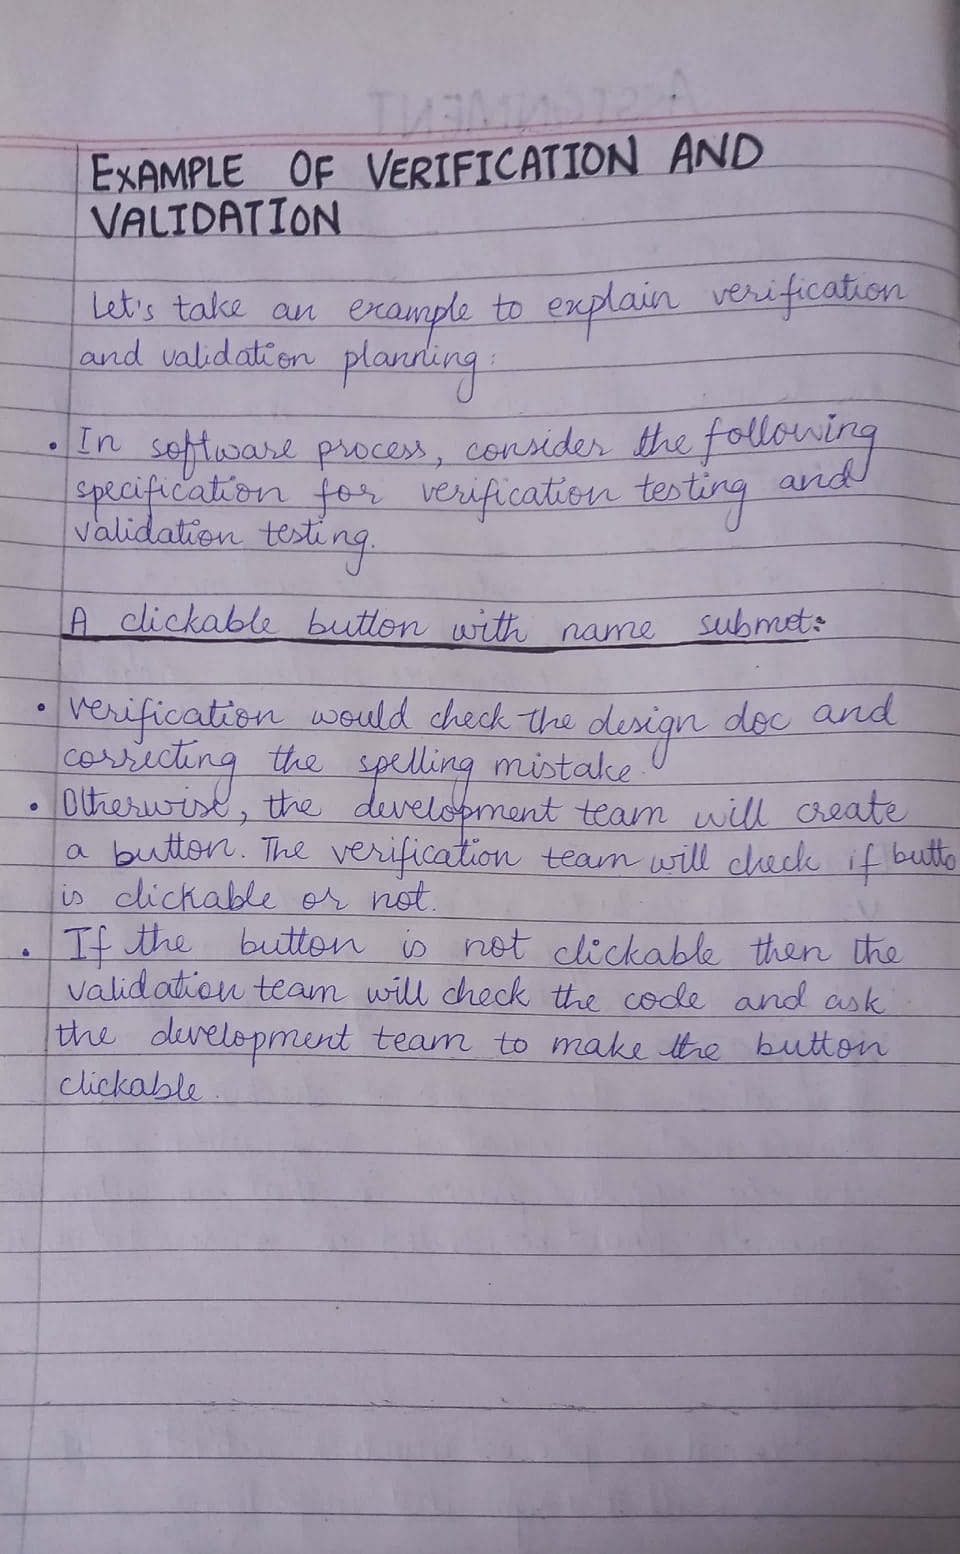 ASSIGNMENT
EXAMPLE OF VERIFICATION AND
VALIDATION
Let's take an example to explain verification
and validation planning:
• In software process, consider the following
specification for verification testing and
validation testing.
A clickable button with name submet:
• Verification would check the design doc and
correcting the spelling mistake.
• Otherwise, the development team will create
a button. The verification team will check if butto
is clickable or not.
• If the button is not clickable then the
validation team will check the code and ask
the development team to make the button
clickable.